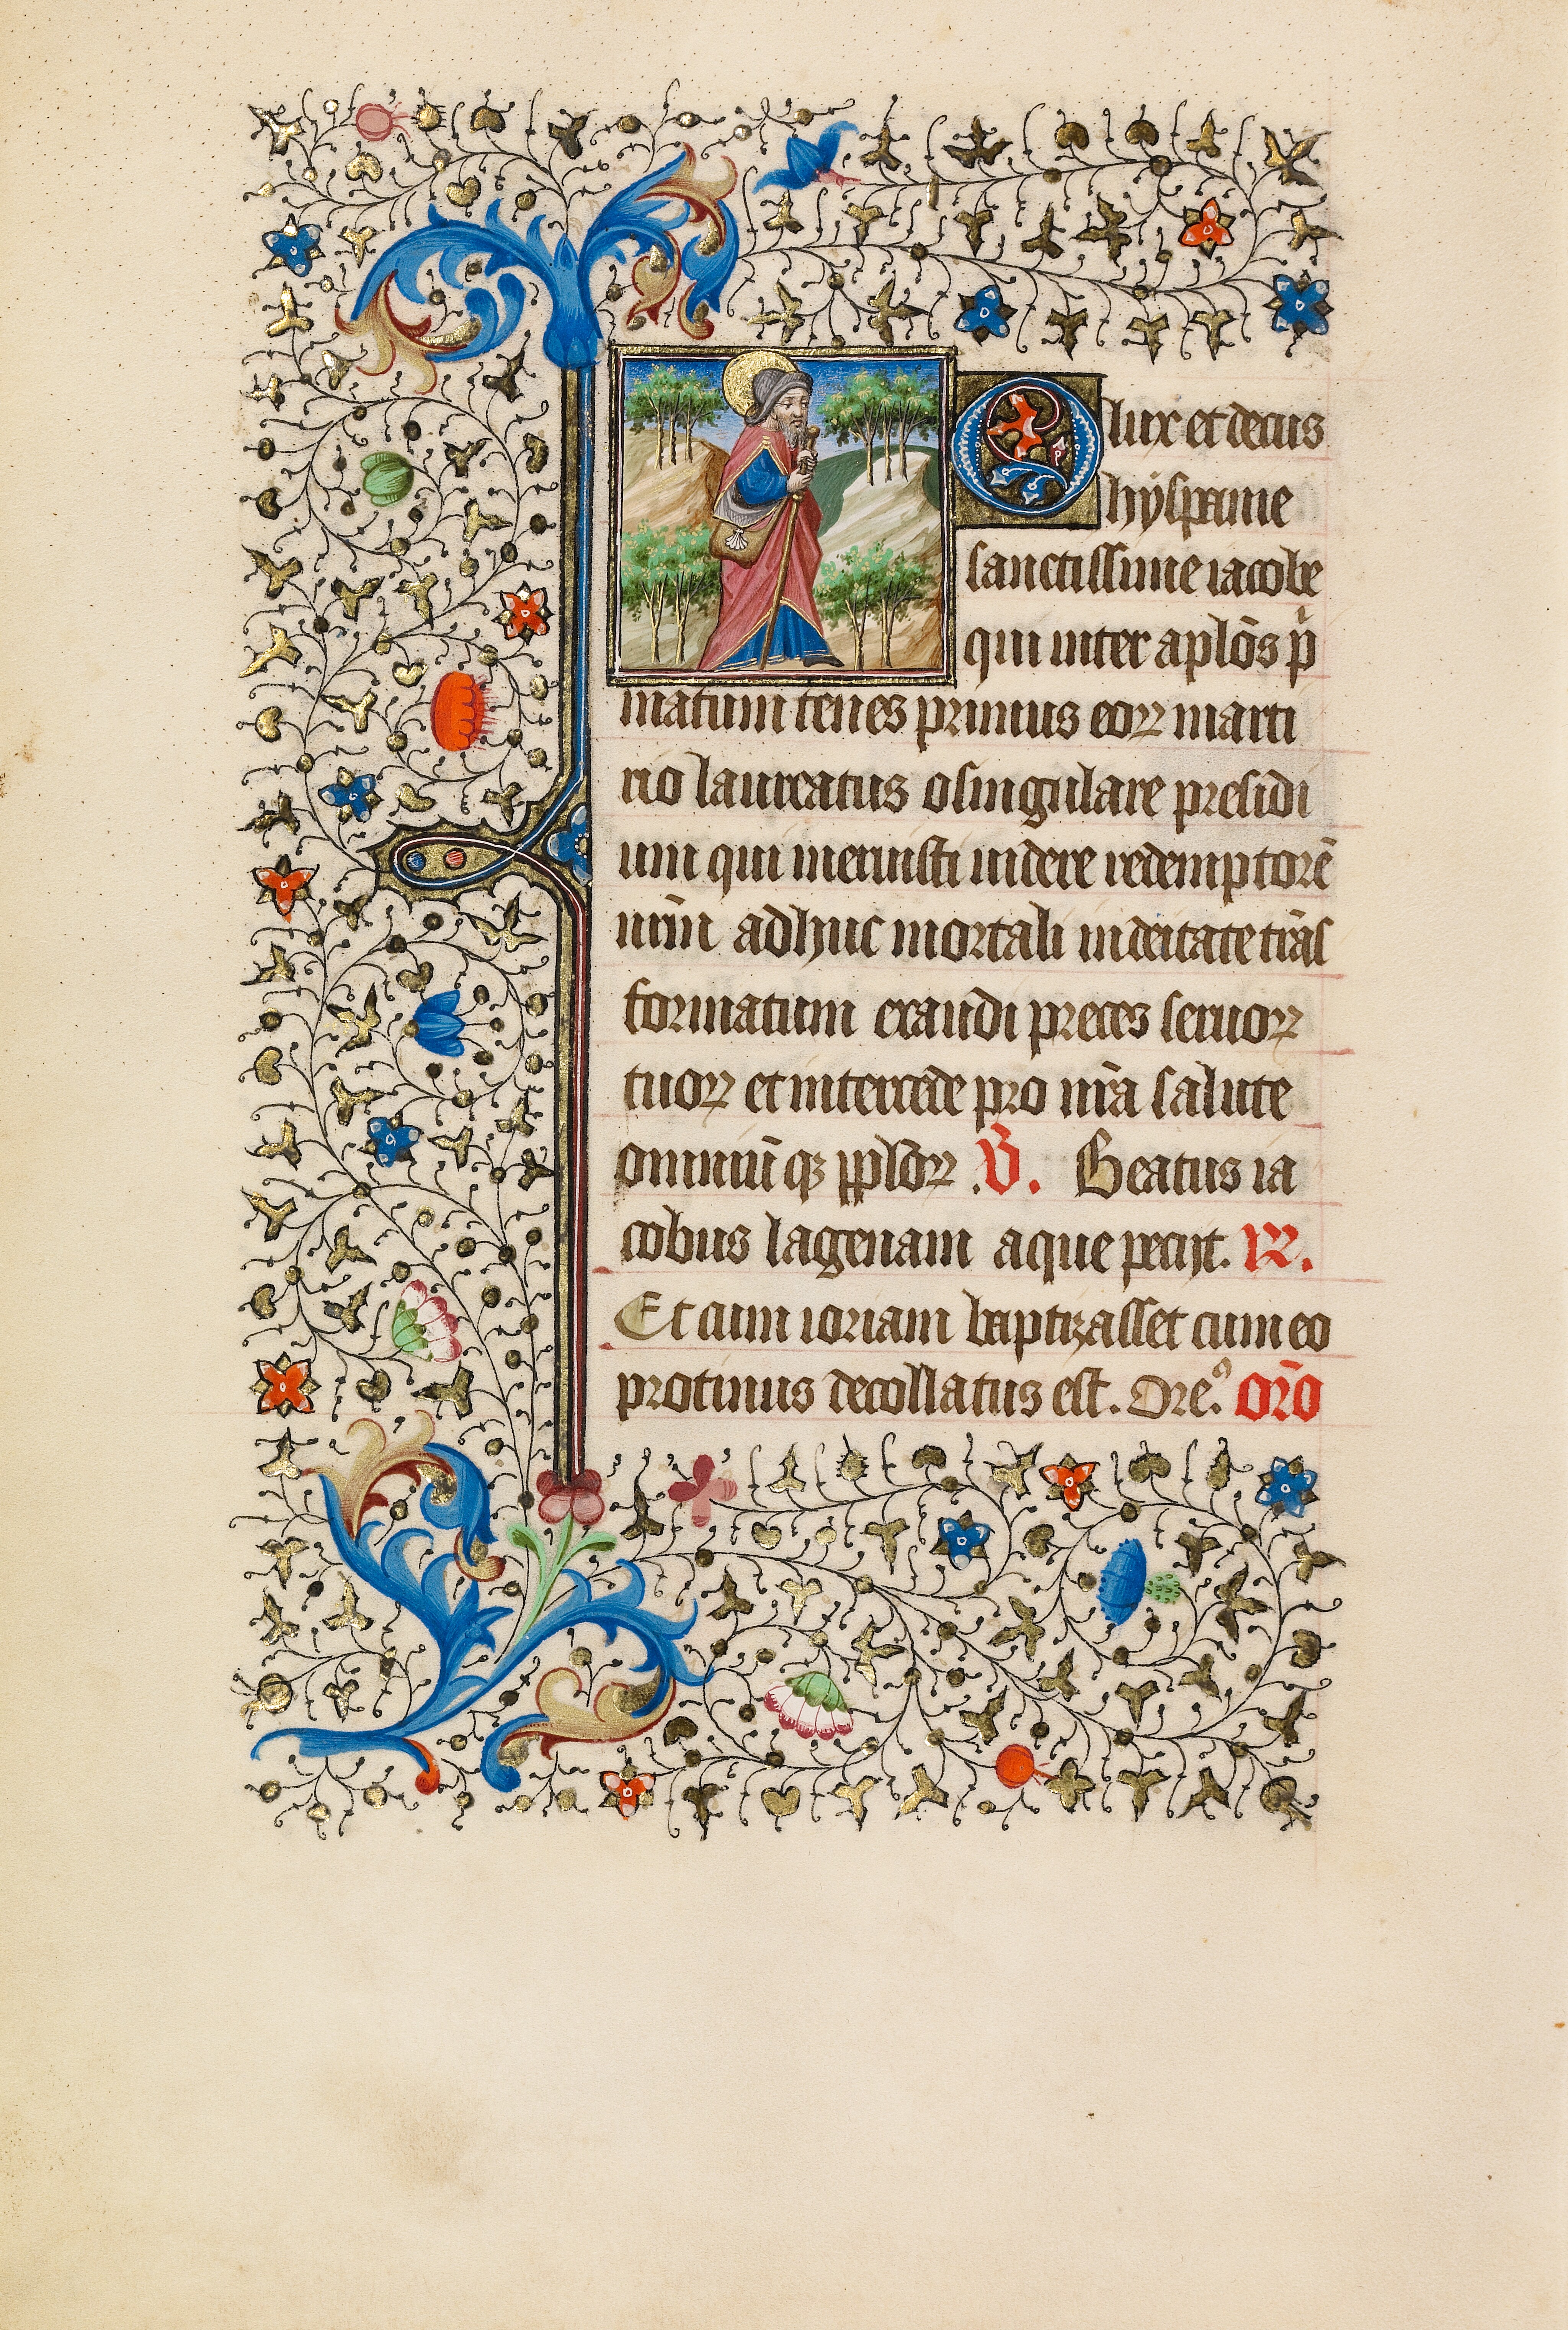 O lux et decus
hÿspanie
sanctissime iacobe
qui inter aplōs p̄
matum tenes primus eoꝝ marti
rio laureatus o singulare presidi
um qui meruisti uidere redemptorē
nr̄m adhuc mortali in deitate trās
formatum exaudi preces seruoꝝ
tuoꝝ et intercede pro nr̄a salute
omniūqꝫ pploꝝ .V̄. Beatus ia
cobus lagenam aque pecijt. R.
Et cum ioriam baptizasset cum eo
protinus decollatus est. Oreꝰ. orō